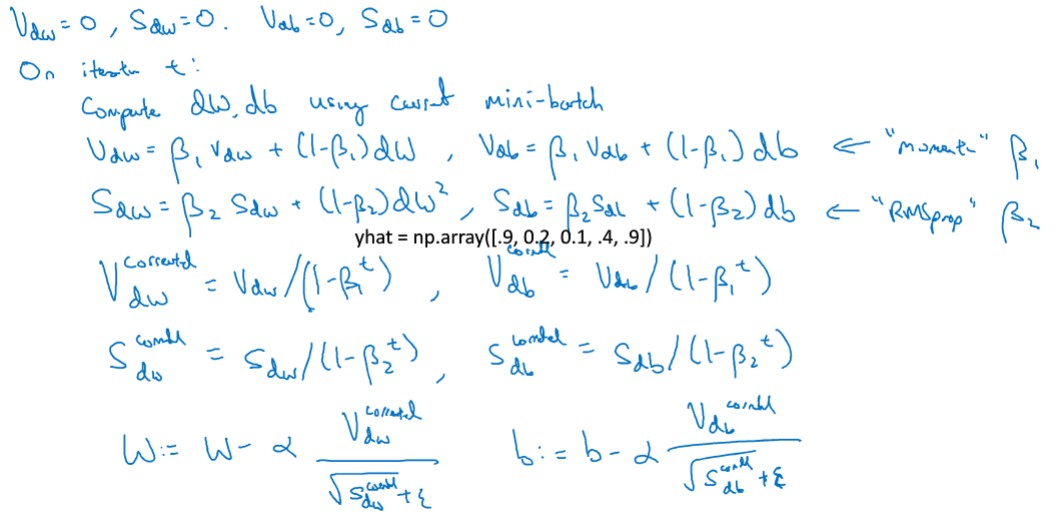 Vdw = 0, Sdw = 0. Vdb = 0, Sdb = 0
On iteration t:
Compute dW, db using current mini-batch
Vdw = β₁ Vdw + (1-β₁)dW , Vdb = β₁ Vdb + (1-β₁) db ← "moment" β₁
Sdw = β₂ Sdw + (1-β₂)dW² , Sdb = β₂ Sdb + (1-β₂) db ← "RMSprop" β₂
yhat = np.array([.9, 0.2, 0.1, .4, .9])
Vdw^corrected = Vdw/(1-β₁^t) , Vdb^corrected = Vdb/(1-β₁^t)
Sdw^corrected = Sdw/(1-β₂^t) , Sdb^corrected = Sdb/(1-β₂^t)
W := W - α Vdw^corrected / (√Sdw^corrected + ε) b := b - α Vdb^corrected / (√Sdb^corrected + ε)